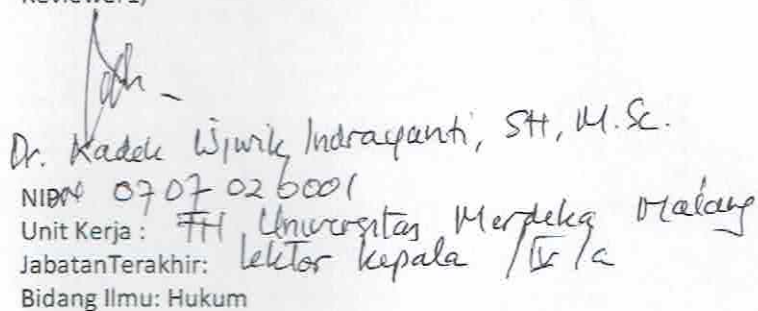 Reviewer 1,
Dr. Kadek Wiwik Indrayanti, SH, M.Sc.
NIDN 0707026001
Unit Kerja : FH Universitas Merdeka Malang
JabatanTerakhir: Lektor kepala / IV / a
Bidang Ilmu: Hukum